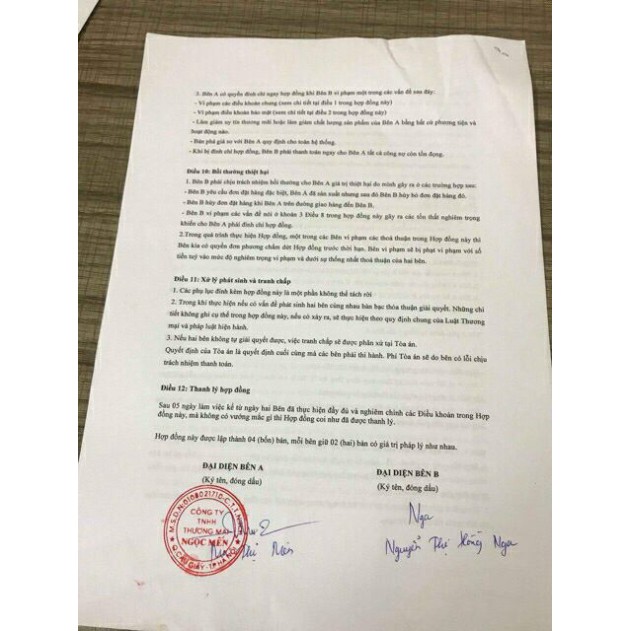 3. Bên A có quyền đình chỉ ngay hợp đồng khi Bên B vi phạm một trong các vấn đề sau đây:
- Vi phạm các điều khoản chung (xem chi tiết tại điều 1 trong hợp đồng này)
- Vi phạm điều khoản bảo mật (xem chi tiết tại điều 2 trong hợp đồng này)
- Làm giảm uy tín thương mại hoặc làm giảm chất lượng sản phẩm của Bên A bằng bất cứ phương tiện và
hoạt động nào.
- Bán phá giá so với Bên A quy định cho toàn hệ thống.
- Khi bị đình chỉ hợp đồng, Bên B phải thanh toán ngay cho Bên A tất cả công nợ còn tồn đọng.
Điều 10: Bồi thường thiệt hại
1. Bên B phải chịu trách nhiệm bồi thường cho Bên A giá trị thiệt hại do mình gây ra ở các trường hợp sau:
- Bên B yêu cầu đơn đặt hàng đặc biệt, Bên A đã sản xuất nhưng sau đó Bên B hủy bỏ đơn đặt hàng đó.
- Bên B hủy đơn đặt hàng khi Bên A trên đường giao hàng đến Bên B.
- Bên B vi phạm các vấn đề nói ở khoản 3 Điều 8 trong hợp đồng này gây ra các tổn thất nghiêm trọng
khiến cho Bên A phải đình chỉ hợp đồng.
2.Trong quá trình thực hiện Hợp đồng, một trong các Bên vi phạm các thoả thuận trong Hợp đồng này thì
Bên kia có quyền đơn phương chấm dứt Hợp đồng trước thời hạn. Bên vi phạm sẽ bị phạt vi phạm với số
tiền tuỳ vào mức độ nghiêm trọng vi phạm và dưới sự thống nhất thoả thuận của hai bên.
Điều 11: Xử lý phát sinh và tranh chấp
1. Các phụ lục đính kèm hợp đồng này là một phần không thể tách rời
2. Trong khi thực hiện nếu có vấn đề phát sinh hai bên cùng nhau bàn bạc thỏa thuận giải quyết. Những chi
tiết không ghi cụ thể trong hợp đồng này, nếu có xảy ra, sẽ thực hiện theo quy định chung của Luật Thương
mại và pháp luật hiện hành.
3. Nếu hai bên không tự giải quyết được, việc tranh chấp sẽ được phân xử tại Tòa án.
Quyết định của Tòa án là quyết định cuối cùng mà các bên phải thi hành. Phí Tòa án sẽ do bên có lỗi chịu
trách nhiệm thanh toán.
Điều 12: Thanh lý hợp đồng
Sau 05 ngày làm việc kể từ ngày hai Bên đã thực hiện đầy đủ và nghiêm chỉnh các Điều khoản trong Hợp
đồng này, mà không có vướng mắc gì thì Hợp đồng coi như đã được thanh lý.
Hợp đồng này được lập thành 04 (bốn) bản, mỗi bên giữ 02 (hai) bản có giá trị pháp lý như nhau.
ĐẠI DIỆN BÊN A
ĐẠI DIỆN BÊN B
(Ký tên, đóng dấu)
(Ký tên, đóng dấu)
CÔNG TY
TNHH
THƯƠNG MẠI
NGỌC MIÊN
Q.CẦU GIẤY-TP HÀ NỘI
Nga
Nguyễn Thị Hồng Nga